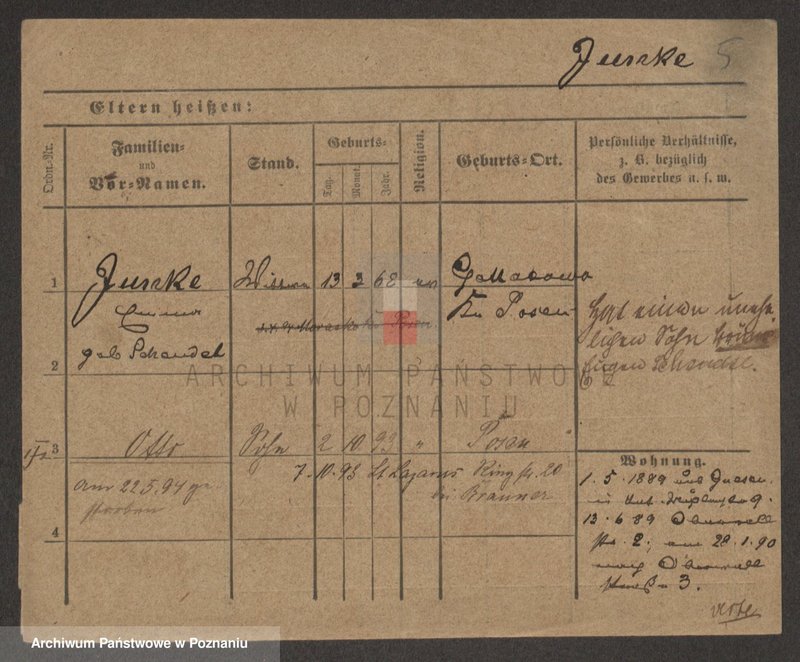 Juszke 5
Eltern heißen:
Ordn.-Nr.
Familien-
und
Vor-Namen.
Stand.
Geburts-
Tag.
Monat.
Jahr.
Religion.
Geburts-Ort.
Persönliche Verhältnisse,
z. B. bezüglich
des Gewerbes u. s. w.
1 Juszke 13 3 68 ev
Emma Kr. Posen
geb Schandel
Hat einen unehe-
ligen Sohn
Eugen
2
ARCHIWUM PAŃSTWOWE
W POZNANIU
3 Otto Sohn 2 10 93 " Posen "
7.10.93 St. Lazarus Ringstr. 20
bei
am 22.5.94 ge-
storben
4
Wohnung.
1.5.1889 aus Gnesen
13.6.89 Oberwall
str. 2; am 28.1.90
nach Oberwall
straß 3.
Archiwum Państwowe w Poznaniu